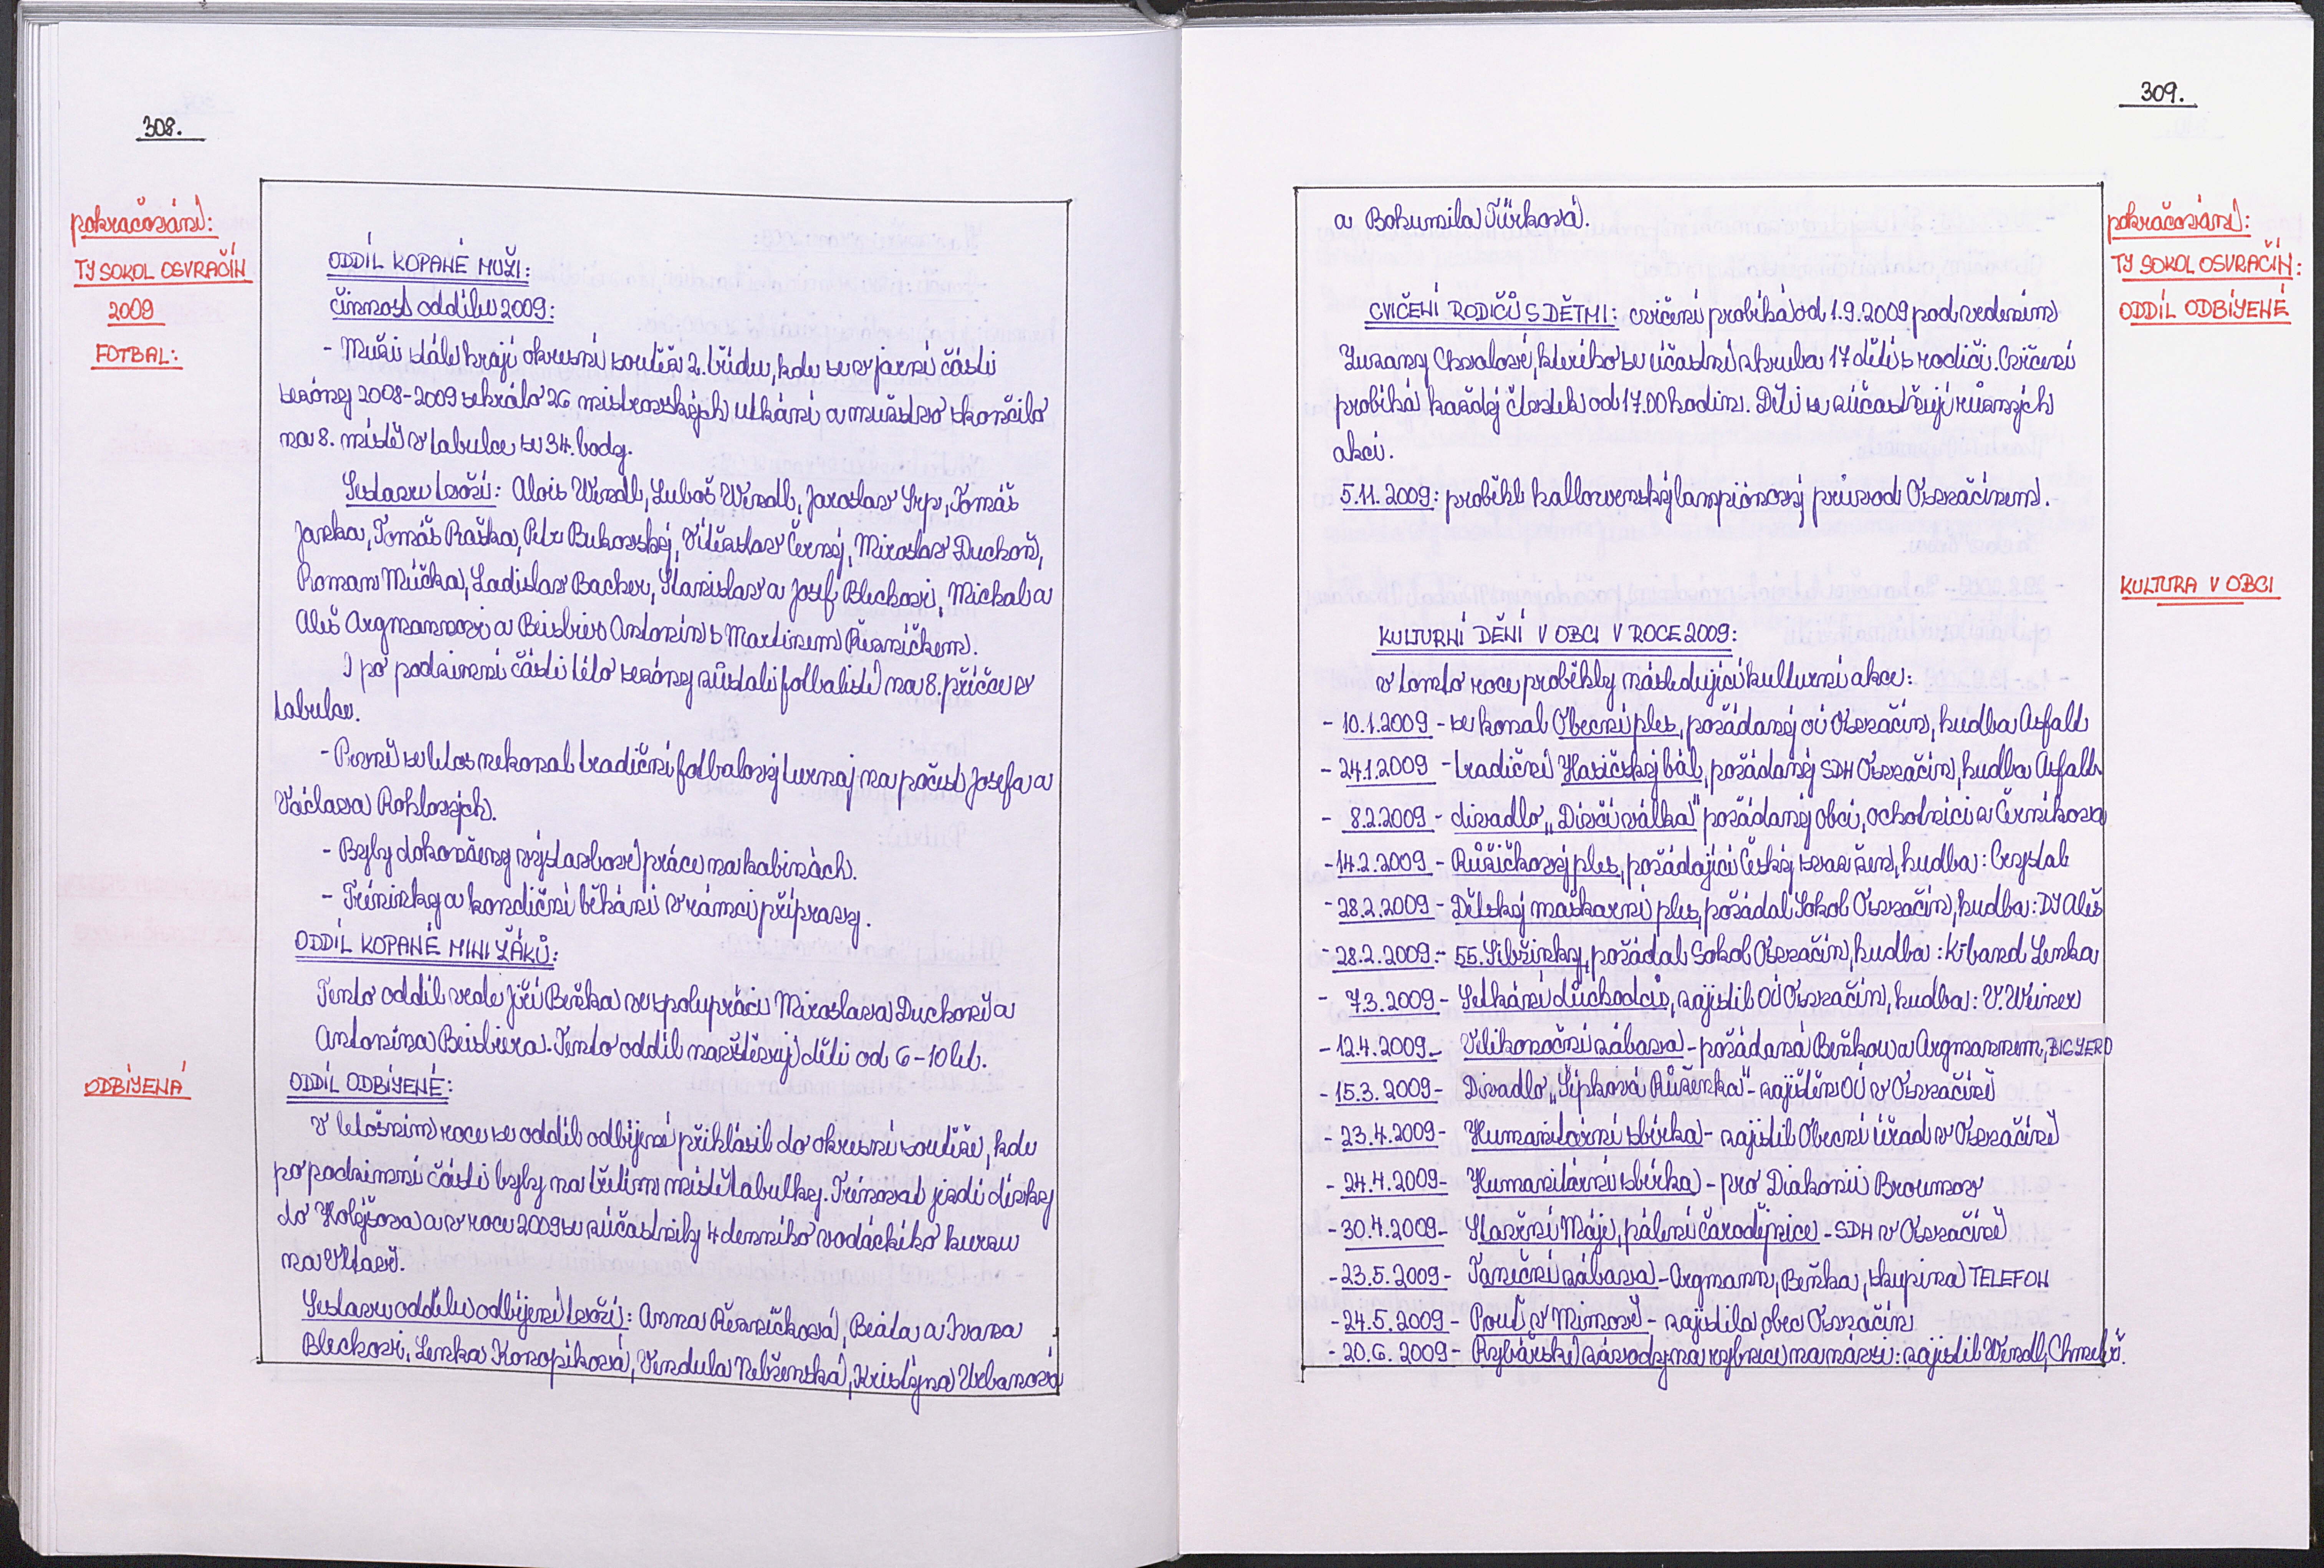 308.
pokračování:
TJ SOKOL OSVRAČÍN
2009
FOTBAL:
ODDÍL KOPANÉ MUŽI:
činnost oddílu 2009:
- Muži stále hrají okresní soutěž 2. třídu, kde se v jarní části
sezóny 2008-2009 sehrálo 26 mistrovských utkání a mužstvo skončilo
na 8. místě v tabulce se 34. body.
Sestavu tvoří: Alois Wendl, Luboš Wendl, Jaroslav Srp, Tomáš
Janka, Tomáš Raška, Petr Bukovský, Vítězslav Černý, Miroslav Duchoň,
Roman Múčka, Ladislav Backer, Stanislav a Josef Bleckovi, Michal a
Aleš Argmannovi a Beisbier Antonín s Martinem Řezníčkem.
I po podzimní části této sezóny zůstali fotbalisté na 8. příčce v
tabulce.
- Prvně se letos nekonal tradiční fotbalový turnaj na počest Josefa a
Václava Rohlových.
- Byly dokončeny výstavbové práce na kabinách.
- Tréninky a kondiční běhání v rámci přípravy.
ODDÍL KOPANÉ MINI ŽÁKŮ:
Tento oddíl vede Jiří Beňka ve spolupráci Miroslava Duchoně a
Antonína Beisbiera. Tento oddíl navštěvují děti od 6-10 let.
ODBÍJENÁ
ODDÍL ODBÍJENÉ:
V letošním roce se oddíl odbíjené přihlásil do okresní soutěže, kde
po podzimní části byly na třetím místě tabulky. Trénovat jezdí dívky
do Holýšova a v roce 2009 se zúčastnily 4 denního vodáckého kurzu
na Vltavě.
Sestavu oddílu odbíjené tvoří: Anna Řezníčková, Beáta a Ivana
Bleckovi, Lenka Konopíková, Vendula Nebřenská, Kristýna Urbanová
309.
a Bohumila Türková.
pokračování:
TJ SOKOL OSVRAČÍN:
ODDÍL ODBÍJENÉ
CVIČENÍ RODIČŮ S DĚTMI: cvičení probíhá od 1.9.2009 pod vedením
Zuzany Chvalové, kterého se účastní zhruba 17 dětí s rodiči. Cvičení
probíhá každý čtvrtek od 17.00 hodin. Děti se zúčastňují různých
akcí.
5.11.2009: proběhl hallowenský lampiónový průvod Osvračínem.
KULTURA V OBCI
KULTURNÍ DĚNÍ V OBCI V ROCE 2009:
v tomto roce proběhly následující kulturní akce:
- 10.1.2009 - se konal Obecní ples, pořádaný OÚ Osvračín, hudba Asfalt
- 24.1.2009 - tradiční Hasičský bál, pořádaný SDH Osvračín, hudba Asfalt
- 8.2.2009 - divadlo „Dívčí válka" pořádaný obcí, ochotníci z Černíkova
- 14.2.2009 - Růžičkový ples, pořádající Český svaz žen, hudba: Crystal
- 28.2.2009 - Dětský maškarní ples, pořádal Sokol Osvračín, hudba: DJ Aleš
- 28.2.2009 - 55. Šibřinky, pořádal Sokol Osvračín, hudba: K-band Lenka
- 7.3.2009 - Setkání důchodců, zajistil OÚ Osvračín, hudba: V. Weiner
- 12.4.2009 - Velikonoční zábava - pořádaná Beňkou a Argmannem, BIGYERO
- 15.3.2009 - Divadlo „Šípková Růženka" - zajištěn OÚ v Osvračíně
- 23.4.2009 - Humanitární sbírka - zajistil Obecní úřad v Osvračíně
- 24.4.2009 - Humanitární sbírka - pro Diakonii Broumov
- 30.4.2009 - Stavění Máje, pálení čarodějnice - SDH v Osvračíně
- 23.5.2009 - Taneční zábava - Argmann, Beňka, skupina TELEFON
- 24.5.2009 - Pouť v Mimově - zajistila obec Osvračín
- 20.6.2009 - Rybářské závody na rybníce na návsi: zajistil Wendl,